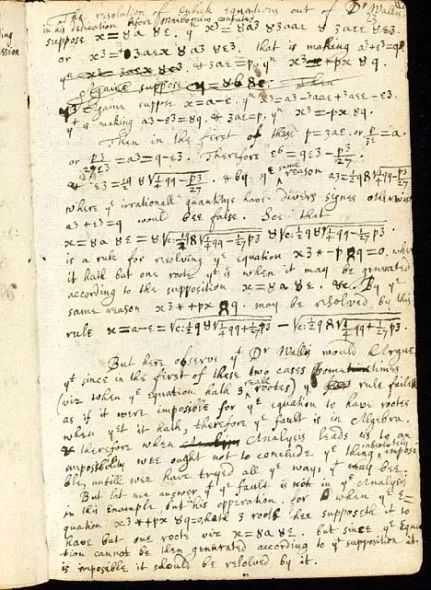 The resolution of Cubick Equations out of Dr Wallis
in his dedication before Meibomius confuted
suppose x=8a 8e. yn x3=8a3 83aae 83aee 8e3.
or x3=*3aex 8a3 8e3. that is making a3+e3=q
& 3ae=p. yn x3=*px 8q.
Againe suppose
Againe suppose x=a-e. yn x3=a3-3aae+3aee-e3.
yt is making a3-e3=8q. & 3ae=p. yn x3=-px 8q.
Then in the first of these p=3ae. or p/3e=a.
or p3/27e3=a3=q-e3. Therefore e6=qe3-p3/27.
& e3=½q 8√¼qq-p3/27. & by ye same reason a3=½q8√¼qq-p3/27
where ye irrationall quantitys have divers signes otherwise
a3+e3=q would bee false. Soe that
x=8a 8e=8√c:½q8√¼qq-1/27p3 8√c:½q8√¼qq-1/27p3.
is a rule for resolving ye equation x3*-px 8q=0. when
it hath but one root yt is when it may be generated
according to the supposition x=8a 8e. &c. By ye
same reason x3*+px 8q. may be resolved by this
rule x=a-e=√c:½q8√¼qq+1/27p3 - √c:½q8√¼qq+1/27p3.
But here observe yt Dr Wallis would Argue
yt since in the first of these two cases sometimes
(viz when ye equation hath 3 reall roots) ye rule failes
as if it were impossible for ye equation to have roots
when yet it hath, therefore ye fault is in Algebra.
& therefore when Analysis leads us to an
impossibility wee ought not to conclude ye thing absolutely impossi
ble, untill wee have tryed all ye ways yt may bee.
But let me answer yt ye fault is not in ye Analysis
in this Example, but his opperation. for when ye E=
quation x3*+px 8q=0 hath 3 roots hee supposeth it to
have but one roote viz x=8a 8e. but since ye Equa
tion cannot be then generated according to yt supposition it
is imposible it should be resolved by it.